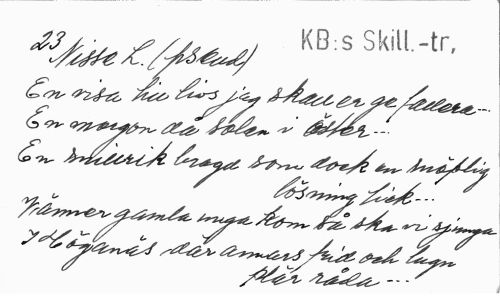 23
KB:s Skill.-tr,
Nisse L. (pseud)
En visa hu livs jag skall er ge fadera...
En morgon då solen i öster...
En snillrik brogd som dock en snöplig
lösning fick...
Vänner gamla unga kom så ska vi sjunga
I Höganäs där annars frid och lugn
plär råda ...